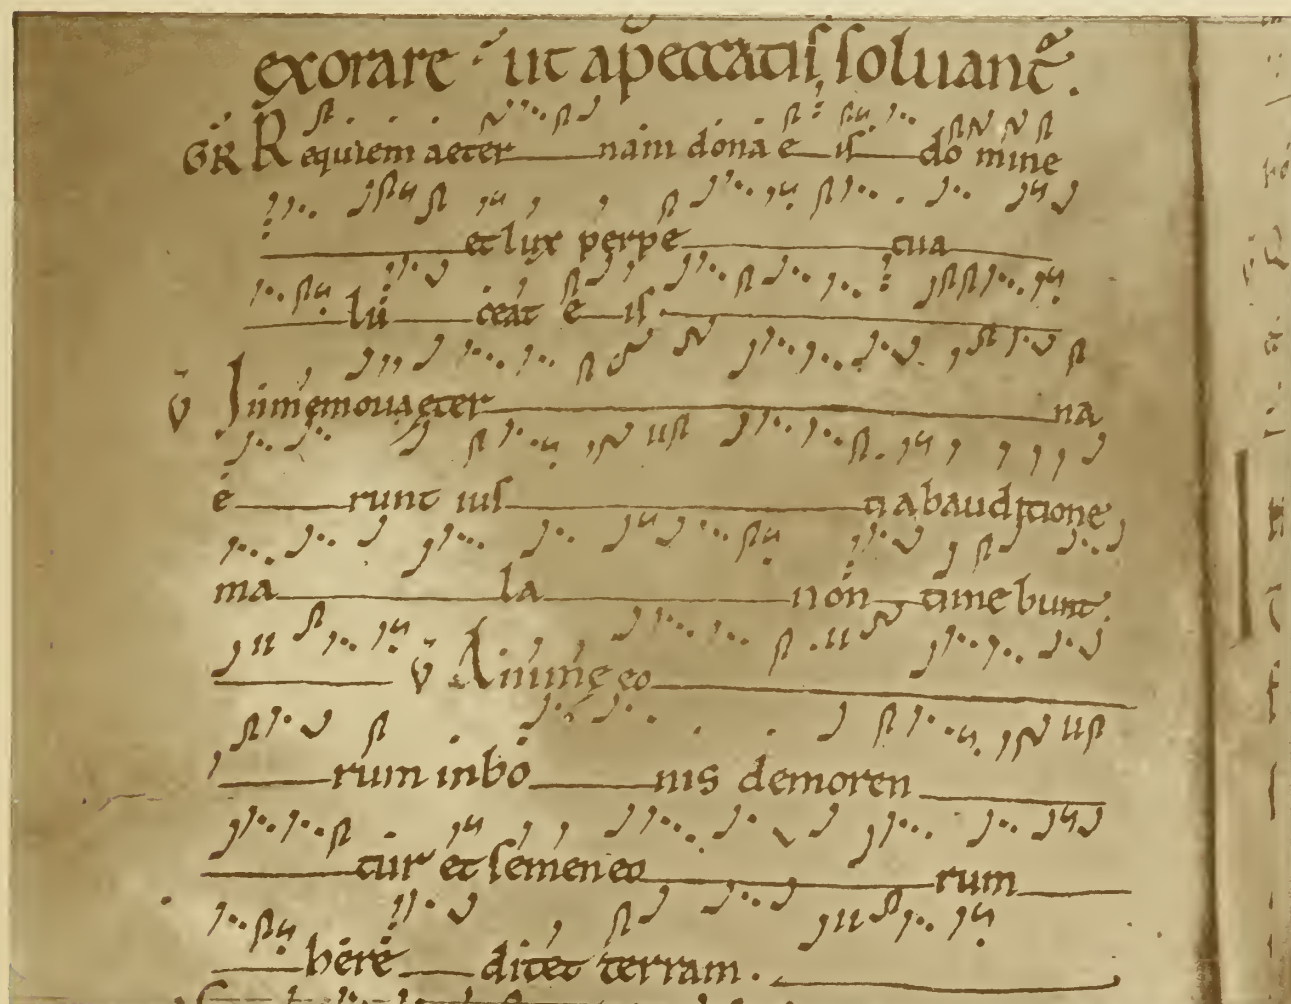 exorare ut apeccatis soluant̄.
GR Requiem aeternam dona eis domine
et lux perpetua
luceat eis.
V̄ In memo uaeterna
erunt ius ti abauditione
mala non timebunt.
V̄ Animę eo
rum inbonis demoren
tur et semen eorum
herè ditet terram.